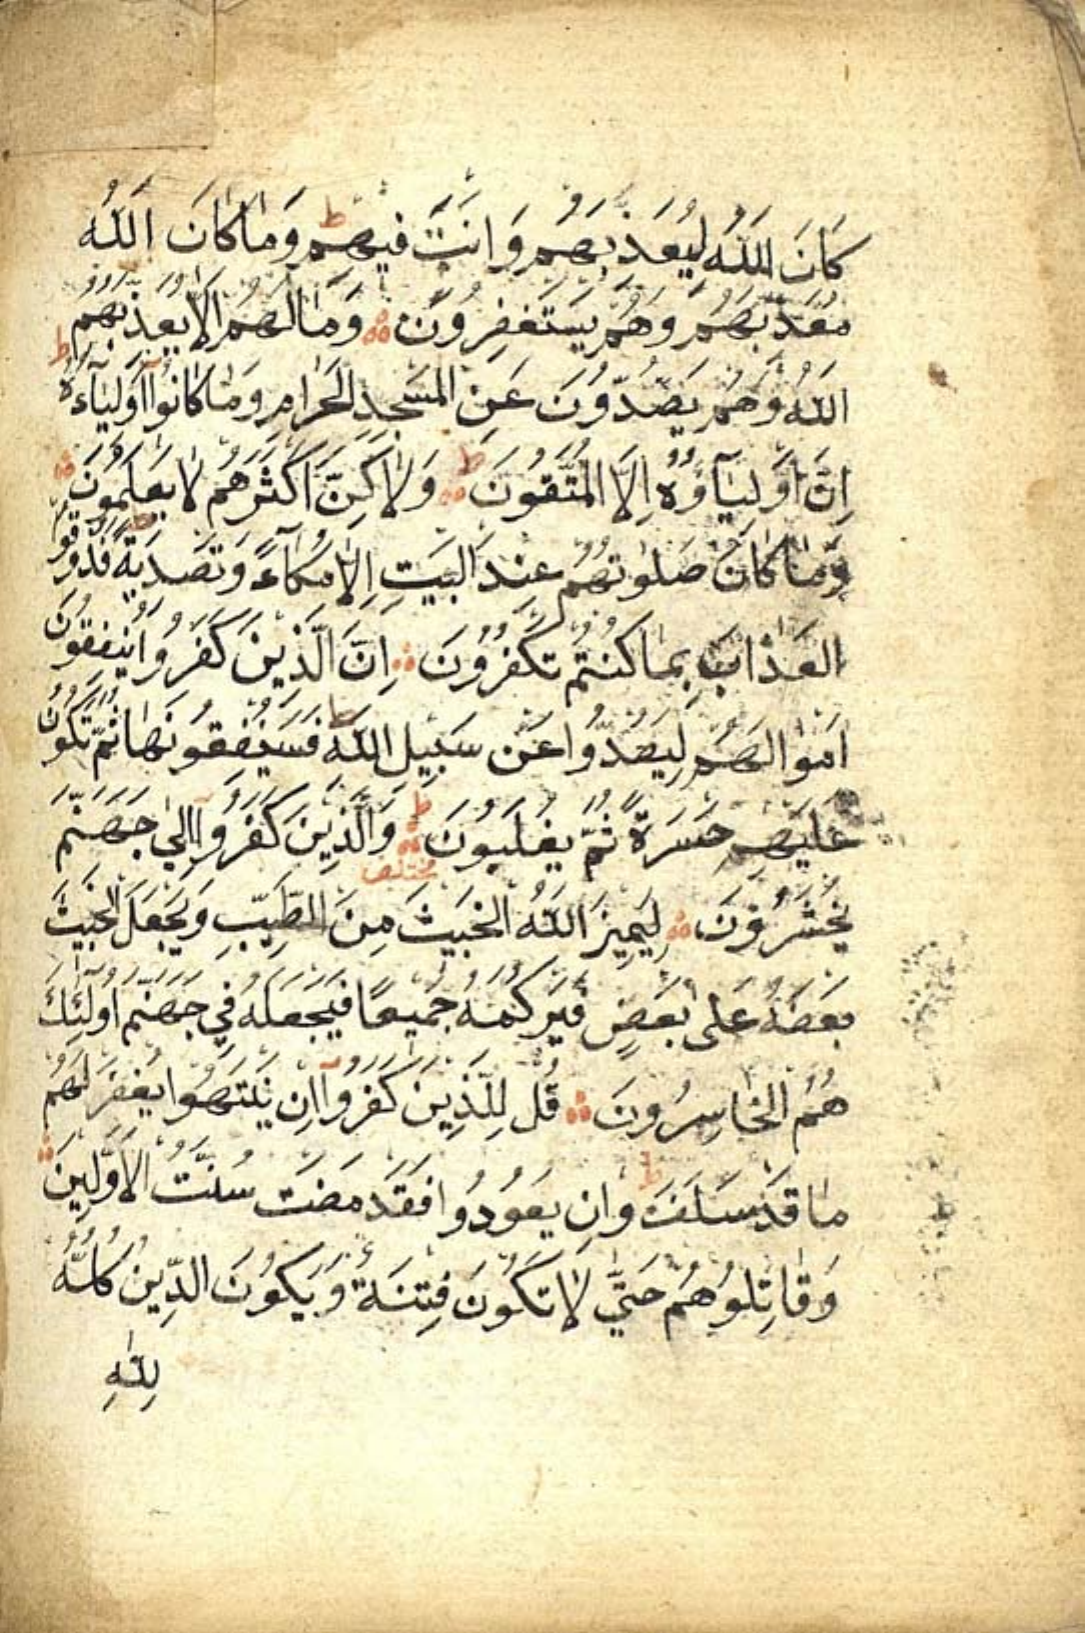 كَانَ اللّٰهُ لِيُعَذِّبَهُمْ وَاَنْتَ فِيهِمْ ط وَمَا كَانَ اللّٰهُ
مُعَذِّبَهُمْ وَهُمْ يَسْتَغْفِرُونَ وَمَا لَهُمْ اَلَّا يُعَذِّبَهُمُ
اللّٰهُ وَهُمْ يَصُدُّونَ عَنِ الْمَسْجِدِ الْحَرَامِ وَمَا كَانُوٓا اَوْلِيَآءَهُ ط
اِنْ اَوْلِيَآؤُهُ اِلَّا الْمُتَّقُونَ ط وَلَاكِنَّ اَكْثَرَهُمْ لَا يَعْلَمُونَ
وَمَا كَانَ صَلٰوتُهُمْ عِنْدَ الْبَيْتِ اِلَّا مُكَآءً وَتَصْدِيَةً ط فَذُوقُوا
الْعَذَابَ بِمَا كُنْتُمْ تَكْفُرُونَ اِنَّ الَّذِينَ كَفَرُوا يُنْفِقُونَ
اَمْوَالَهُمْ لِيَصُدُّوا عَنْ سَبِيلِ اللّٰهِ ط فَسَيُنْفِقُونَهَا ثُمَّ تَكُونُ
عَلَيْهِمْ حَسْرَةً ثُمَّ يُغْلَبُونَ ط وَالَّذِينَ كَفَرُوٓا اِلٰى جَهَنَّمَ
مختلف
يُحْشَرُونَ لِيَمِيزَ اللّٰهُ الْخَبِيثَ مِنَ الطَّيِّبِ وَيَجْعَلَ الْخَبِيثَ
بَعْضَهُ عَلٰى بَعْضٍ فَيَرْكُمَهُ جَمِيعًا فَيَجْعَلَهُ فِي جَهَنَّمَ اُولٰٓئِكَ
هُمُ الْخَاسِرُونَ قُلْ لِلَّذِينَ كَفَرُوٓا اِنْ يَنْتَهُوا يُغْفَرْ لَهُمْ
مَا قَدْ سَلَفَ ط وَاِنْ يَعُودُوا فَقَدْ مَضَتْ سُنَّتُ الْاَوَّلِينَ
وَقَاتِلُوهُمْ حَتّٰى لَا تَكُونَ فِتْنَةٌ وَيَكُونَ الدِّينُ كُلُّهُ
لِلّٰهِ